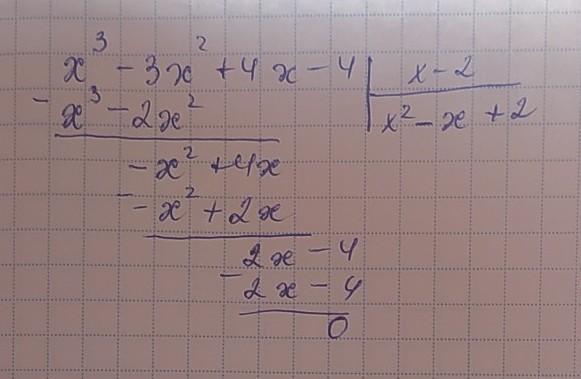 x³ - 3x² + 4x - 4 | x - 2
- x³ - 2x² | x² - x + 2
- x² + 4x
- - x² + 2x
2x - 4
- 2x - 4
0